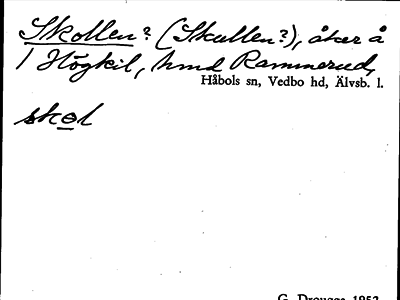 Skollen? (Skullen?), åker å
1 Högkil, hmd Rammerud,
Håbols sn, Vedbo hd, Älvsb. l.
skol
G. Drougge 1952